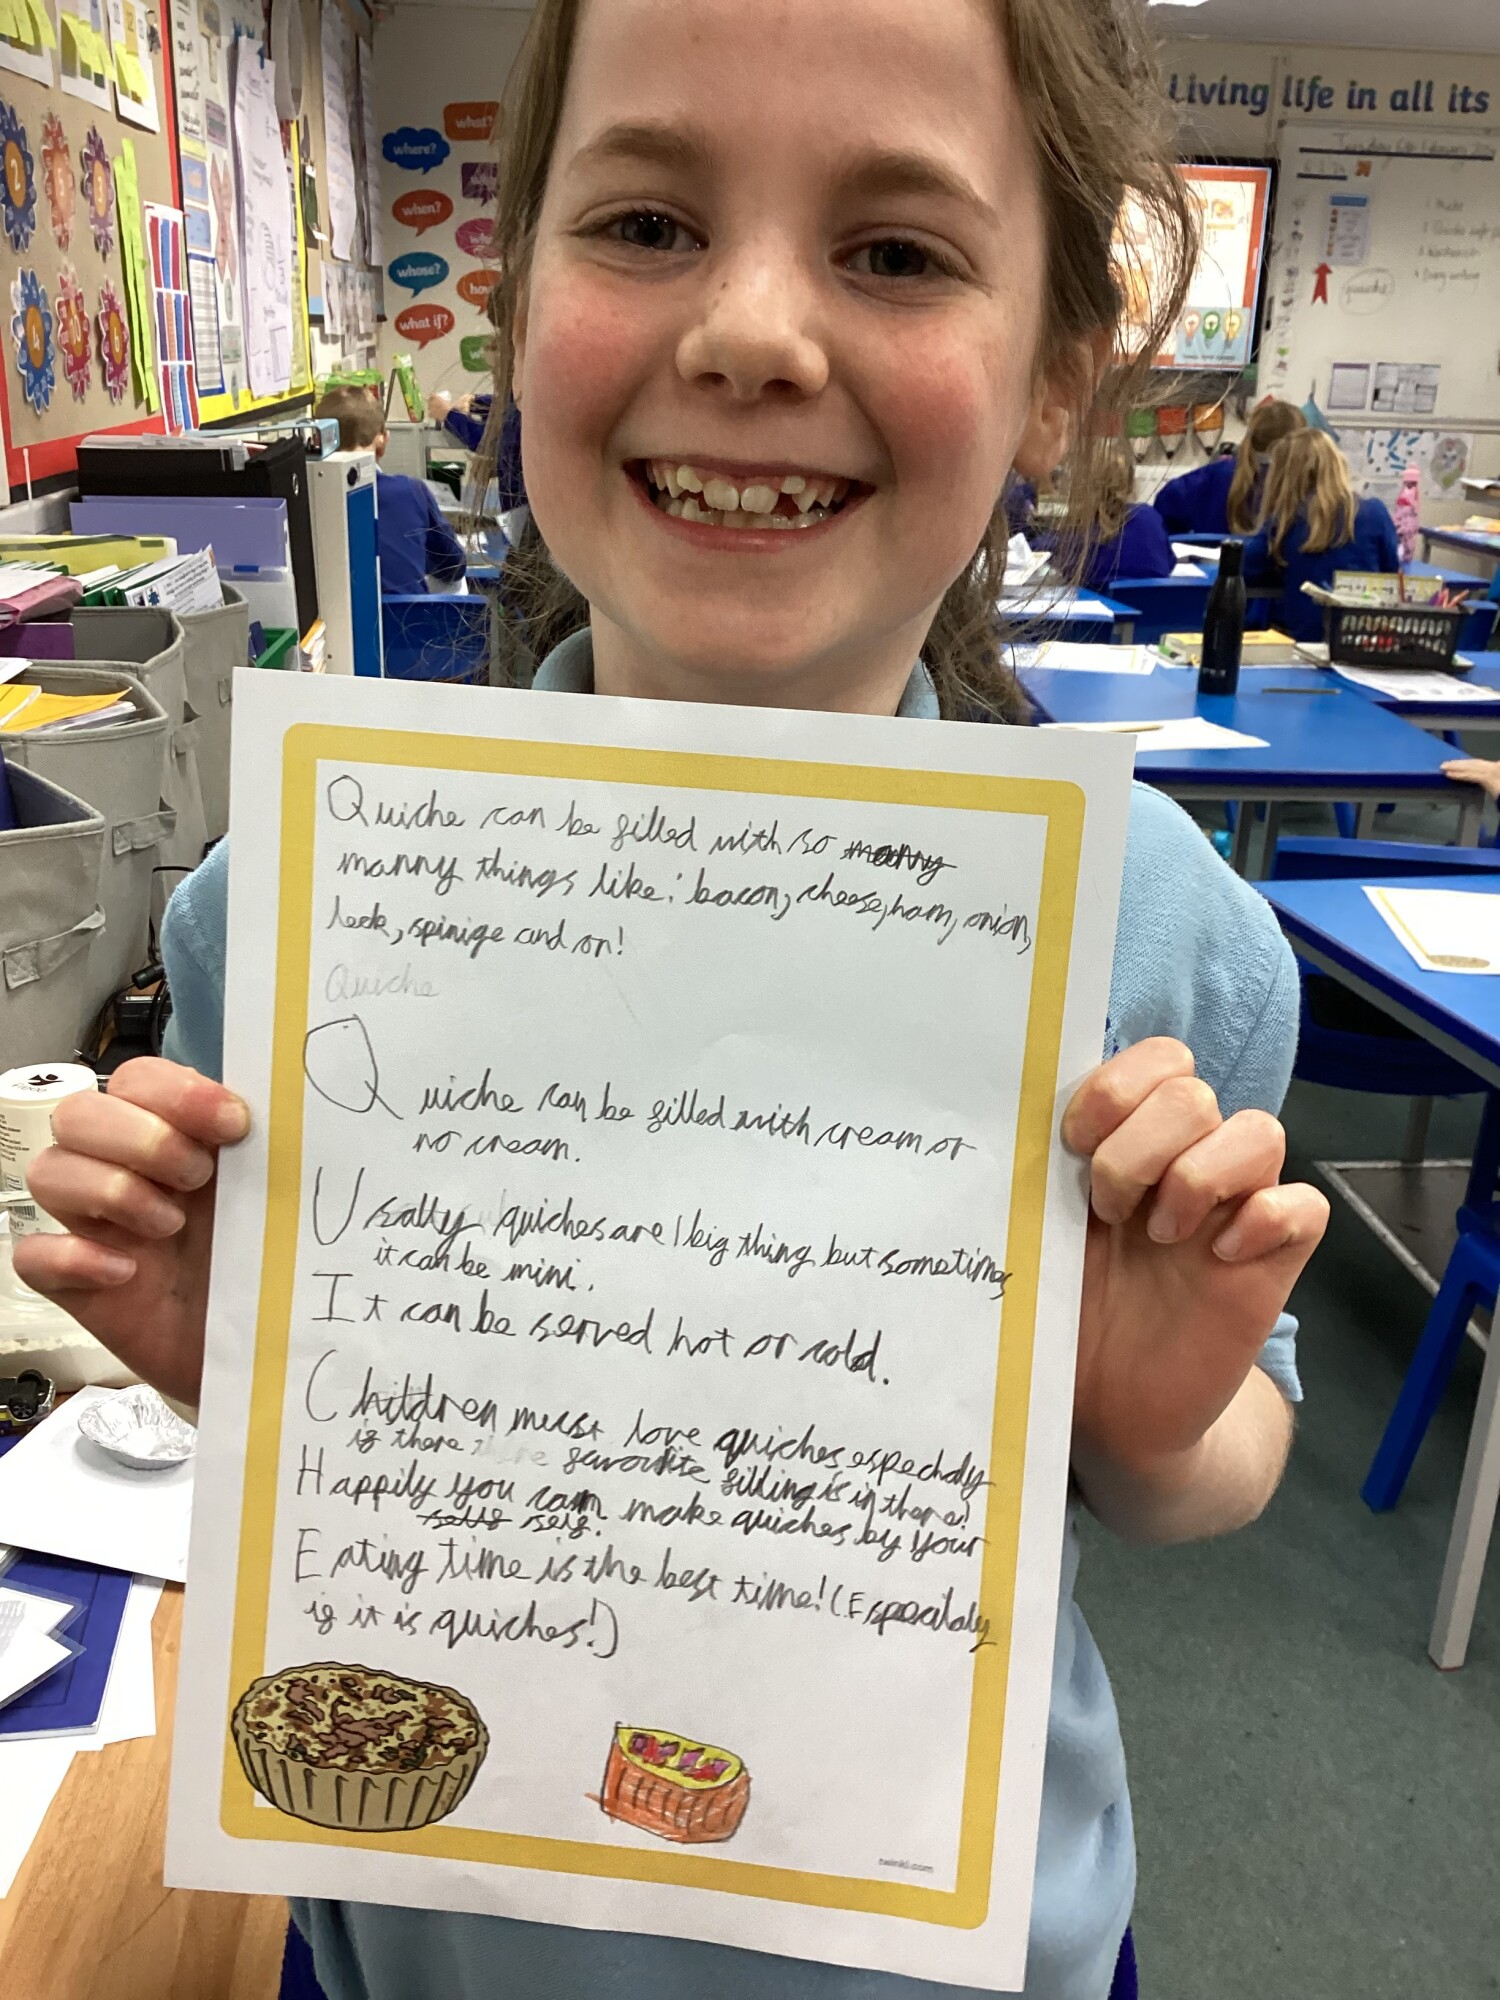 Living life in all its
what?
where?
when?
whose?
how
what if?
2
3
4
10
6
Quiche
Quiche can be filled with so manny
manny things like: bacon, cheese, ham, onion,
leek, spinige and on!
Quiche
Quiche can be filled with cream or
no cream.
Usally quiches are 1 big thing but sometimes
it can be mini.
It can be served hot or cold.
Children must love quiches espechaly
if there favourite filling is in there!
Happily you can make quiches by your
self.
Eating time is the best time! (Especihaly
if it is quiches!)
twinkl.com